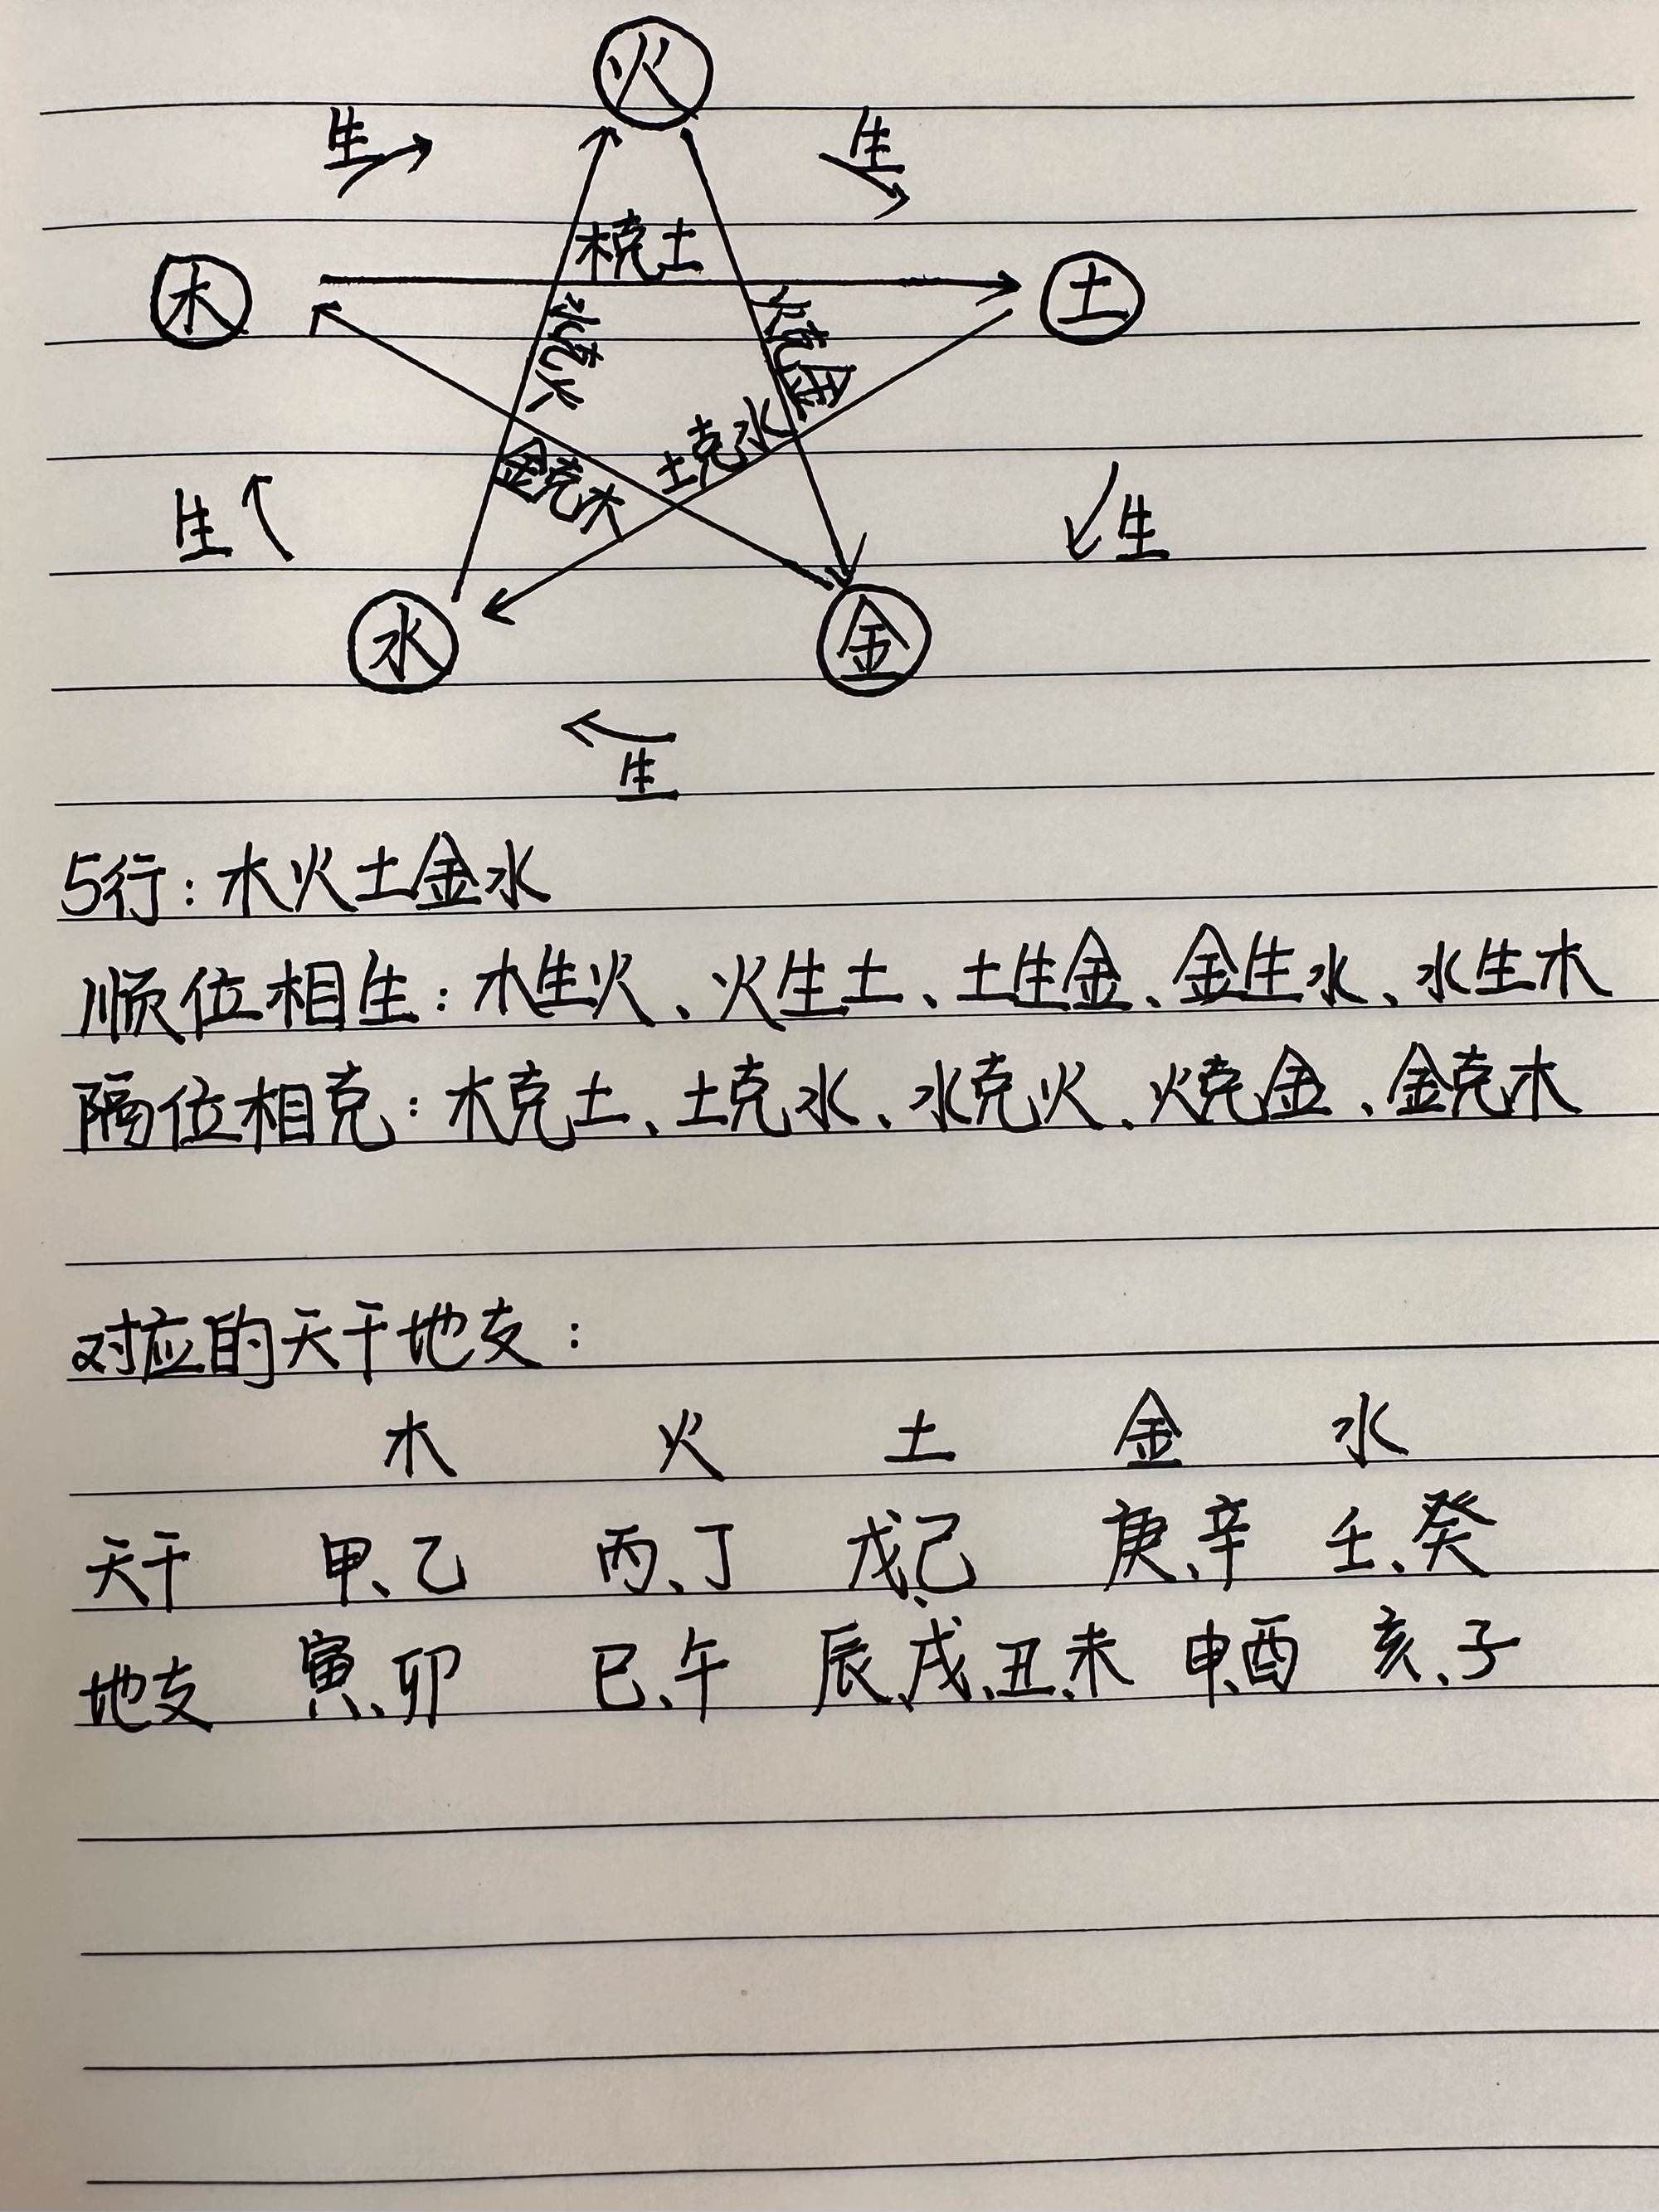 火
生 生
木克土
木 土
水克火 火克金
土克水
金克木
生 生
水 金
生
5行：木火土金水
顺位相生：木生火、火生土、土生金、金生水、水生木
隔位相克：木克土、土克水、水克火、火克金、金克木
对应的天干地支：
木 火 土 金 水
天干 甲、乙 丙、丁 戊、己 庚、辛 壬、癸
地支 寅、卯 巳、午 辰、戌、丑、未 申、酉 亥、子